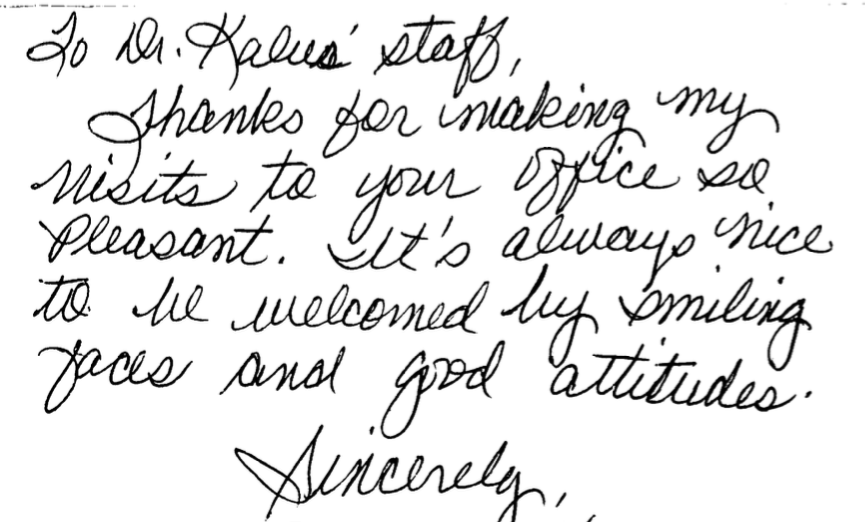 To Dr. Kalus' staff,
Thanks for making my
visits to your office so
pleasant. It's always nice
to be welcomed by smiling
faces and good attitudes.
Sincerely,